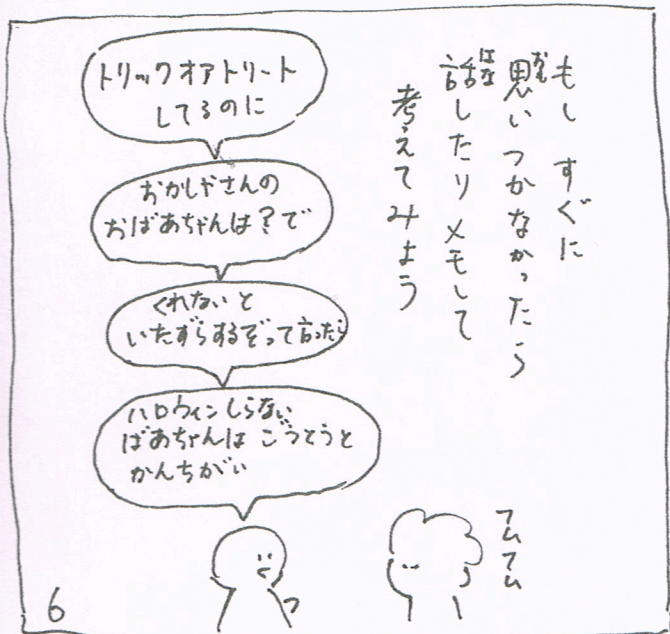 もし すぐに
思いつかなかったら
おも
話したりメモして
はな
考えてみよう
トリックオアトリート
してるのに
おかしやさんの
おばあちゃんは?で
くれないと
いたずらするぞって言ったら
ハロウィンしらない
ばあちゃんは ごうとうと
かんちがい
フムフム
6